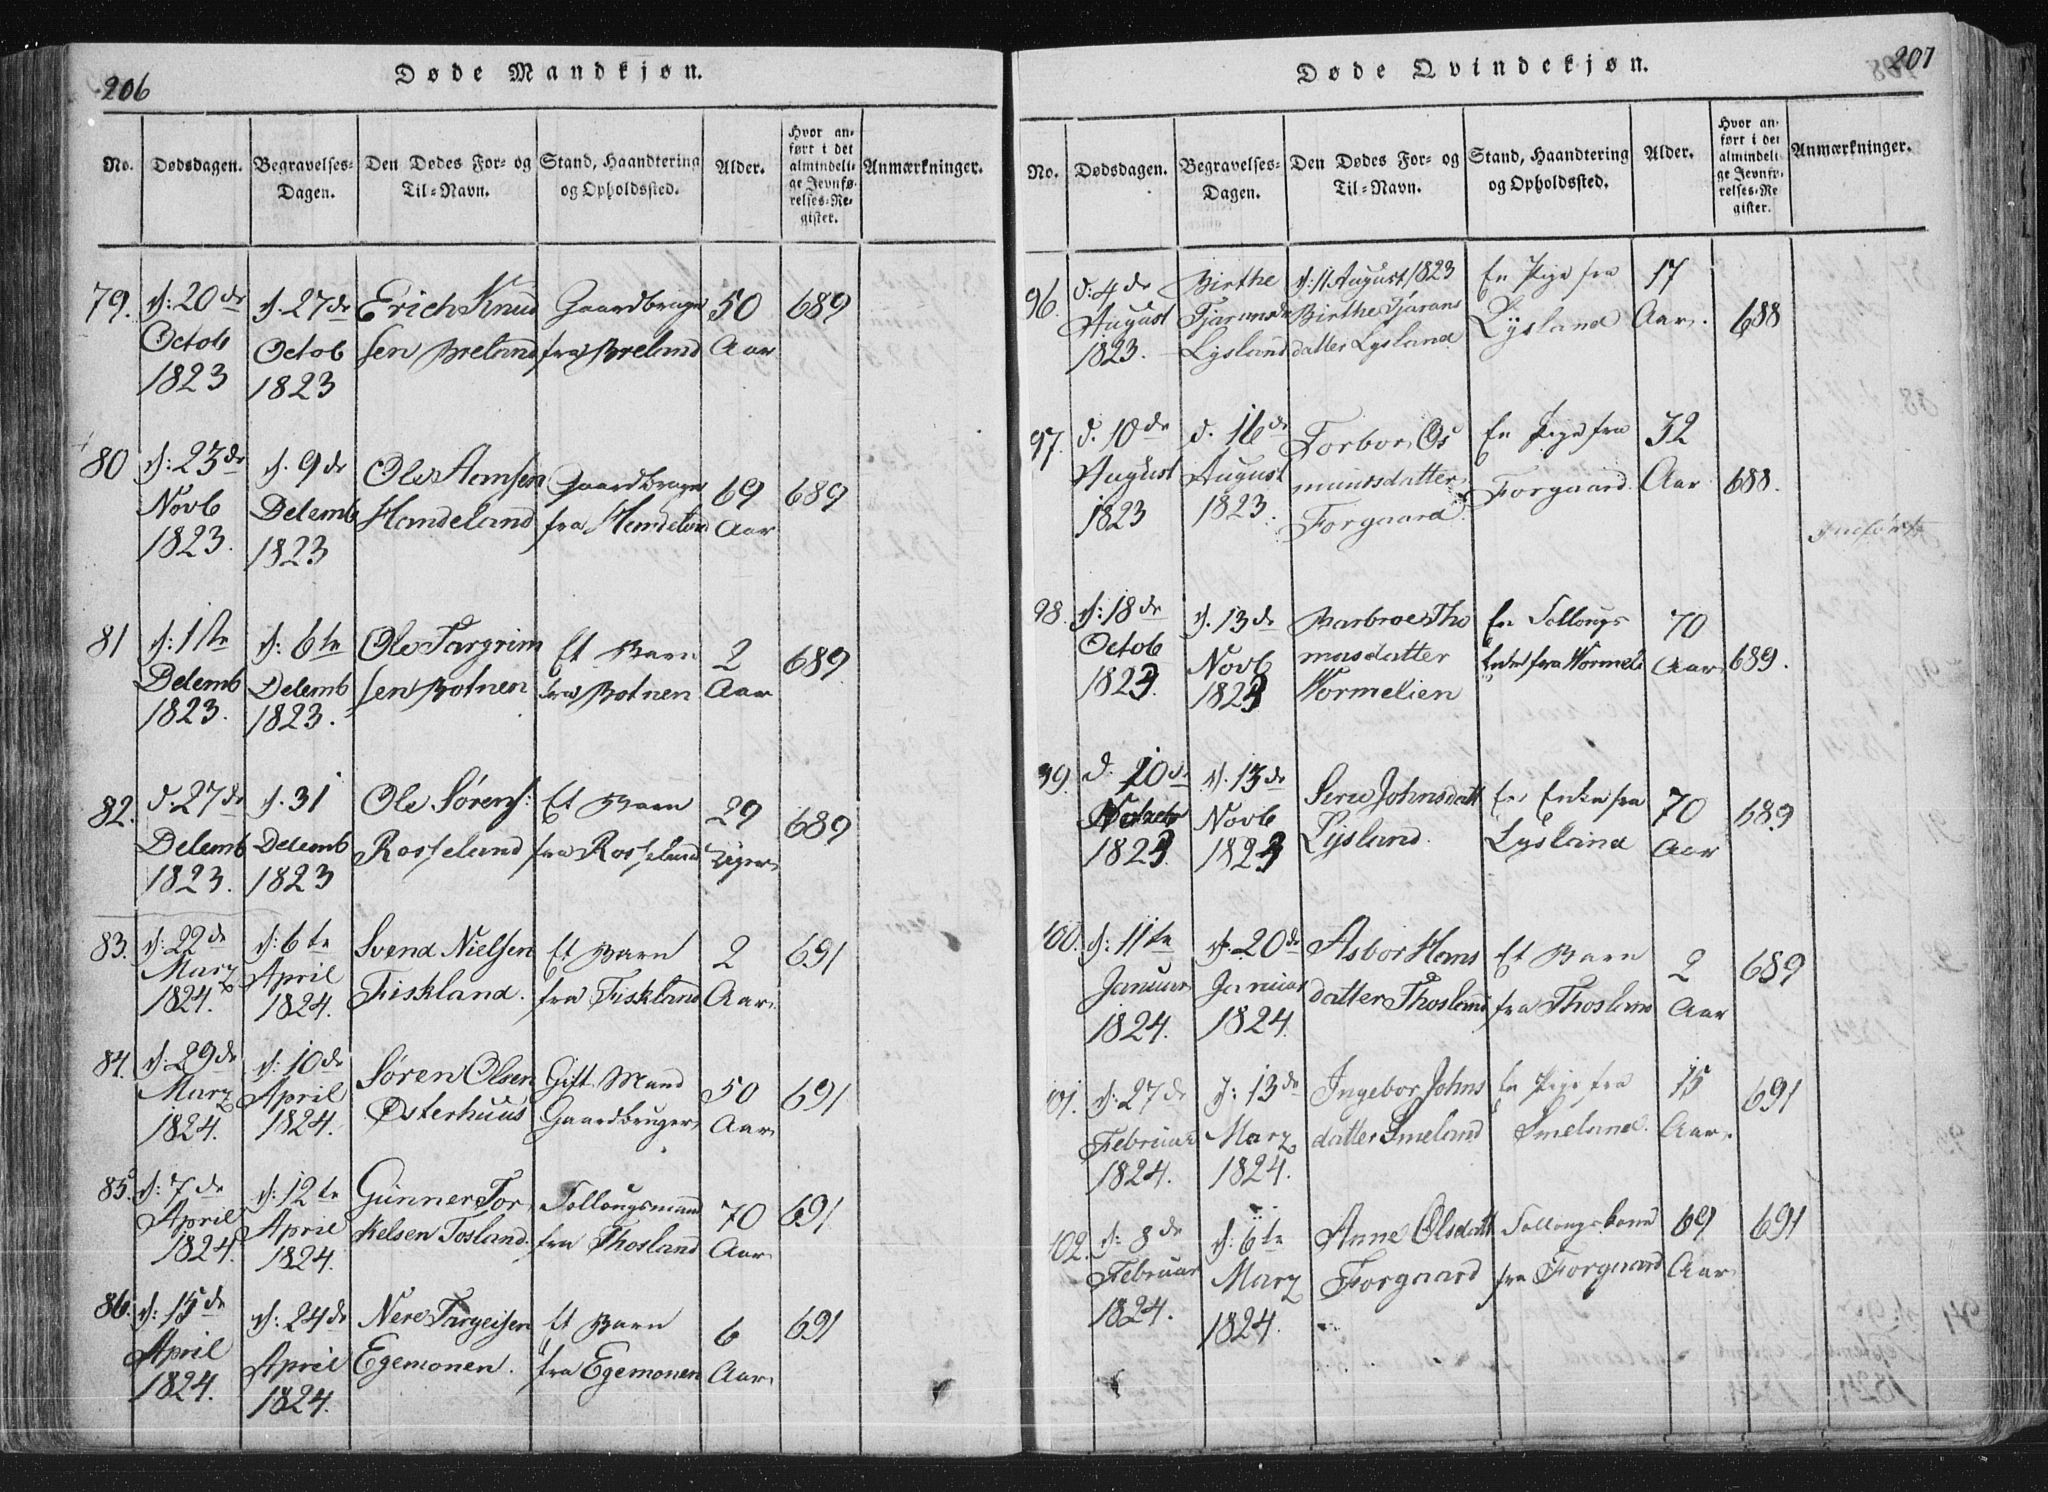 206
Døde Mandkjøn.
No. Dødsdagen. Begravelses-Dagen. Den Dødes For- og Til-Navn. Stand, Haandtering og Opholdssted. Alder. Hvor anført i det almindelige Jevnførelses-Register. Anmærkninger.
79. d: 20de d. 27de Erich Knud Gaardbruger 50 689
Octob Octob sen Breland fra Breland Aar
1823 1823
80 d: 23de d. 9de Ole Aamsen Gaardbruger 69 689
Novb Decemb Handeland fra Handeland Aar
1823. 1823
81 d: 1ste d: 6te Ole Targrim Et Barn 2 689
Decemb Decemb sen Botnen fra Botnen Aar
1823. 1823.
82. d. 27de d. 31 Ole Sørens: Et Barn 29 689
Decemb Decemb Rosseland fra Rosseland Uger
1823. 1823
83. d: 22de d: 6te Svend Nielsen Et Barn 2 691
Marz April Fiskland. fra Fiskland Aar
1824. 1824.
84. d: 29de d: 10de Søren Olsen Gift Mand 50 691
Marz April Østerhuus Gaardbruger Aar
1824. 1824.
85. d: 7de d: 12te Gunner Tor Follougsmand 70 691
April April kelsen Tosland. fra Thosland Aar
1824. 1824.
86. d: 15de d: 24de Nere Targeisen Et Barn 6 691
April April Egemonen. fra Egemonen Aar
1824. 1824.
207
Døde Qvindekjøn.
No. Dødsdagen. Begravelses-Dagen. Den Dødes For- og Til-Navn. Stand, Haandtering og Opholdssted. Alder. Hvor anført i det almindelige Jevnførelses-Register. Anmærkninger.
96. d: 4de Birthe d: 11 August 1823 En Pige fra 17 688
August Tjaransda Birthe Tjarans Lysland Aar.
1823. Lysland datter Lysland
97. d. 10de d. 16de Torbor Os En Pige fra 32 688.
August August mundsdatter Forgaard. Aar
1823 1823. Forgaard.
98. d: 18de d. 13de Barbroe Tho En Follougs 70 689.
Octob Novb masdatter Enke fra Vormeli Aar
1823. 1823 Vormelien
99. d. 20de d. 13de Serve Johnsdatt En Enke fra 70 689
Novb Lysland. Lysland Aar
1823. 1823
100. d: 11te d. 20de Asbor Hans Et Barn 2 689
Januar Januar datter Thosland fra Thosland Aar
1824. 1824.
101. d: 27de d: 13de Ingebor Johns En Pige fra 15 691
Februar Marz datter Smeland Smeland. Aar.
1824. 1824.
102. d: 8de d: 6te Anne Olsdatt Follougskone 69 691
Februar Marz Forgaard fra Forgaard Aar
1824. 1824.